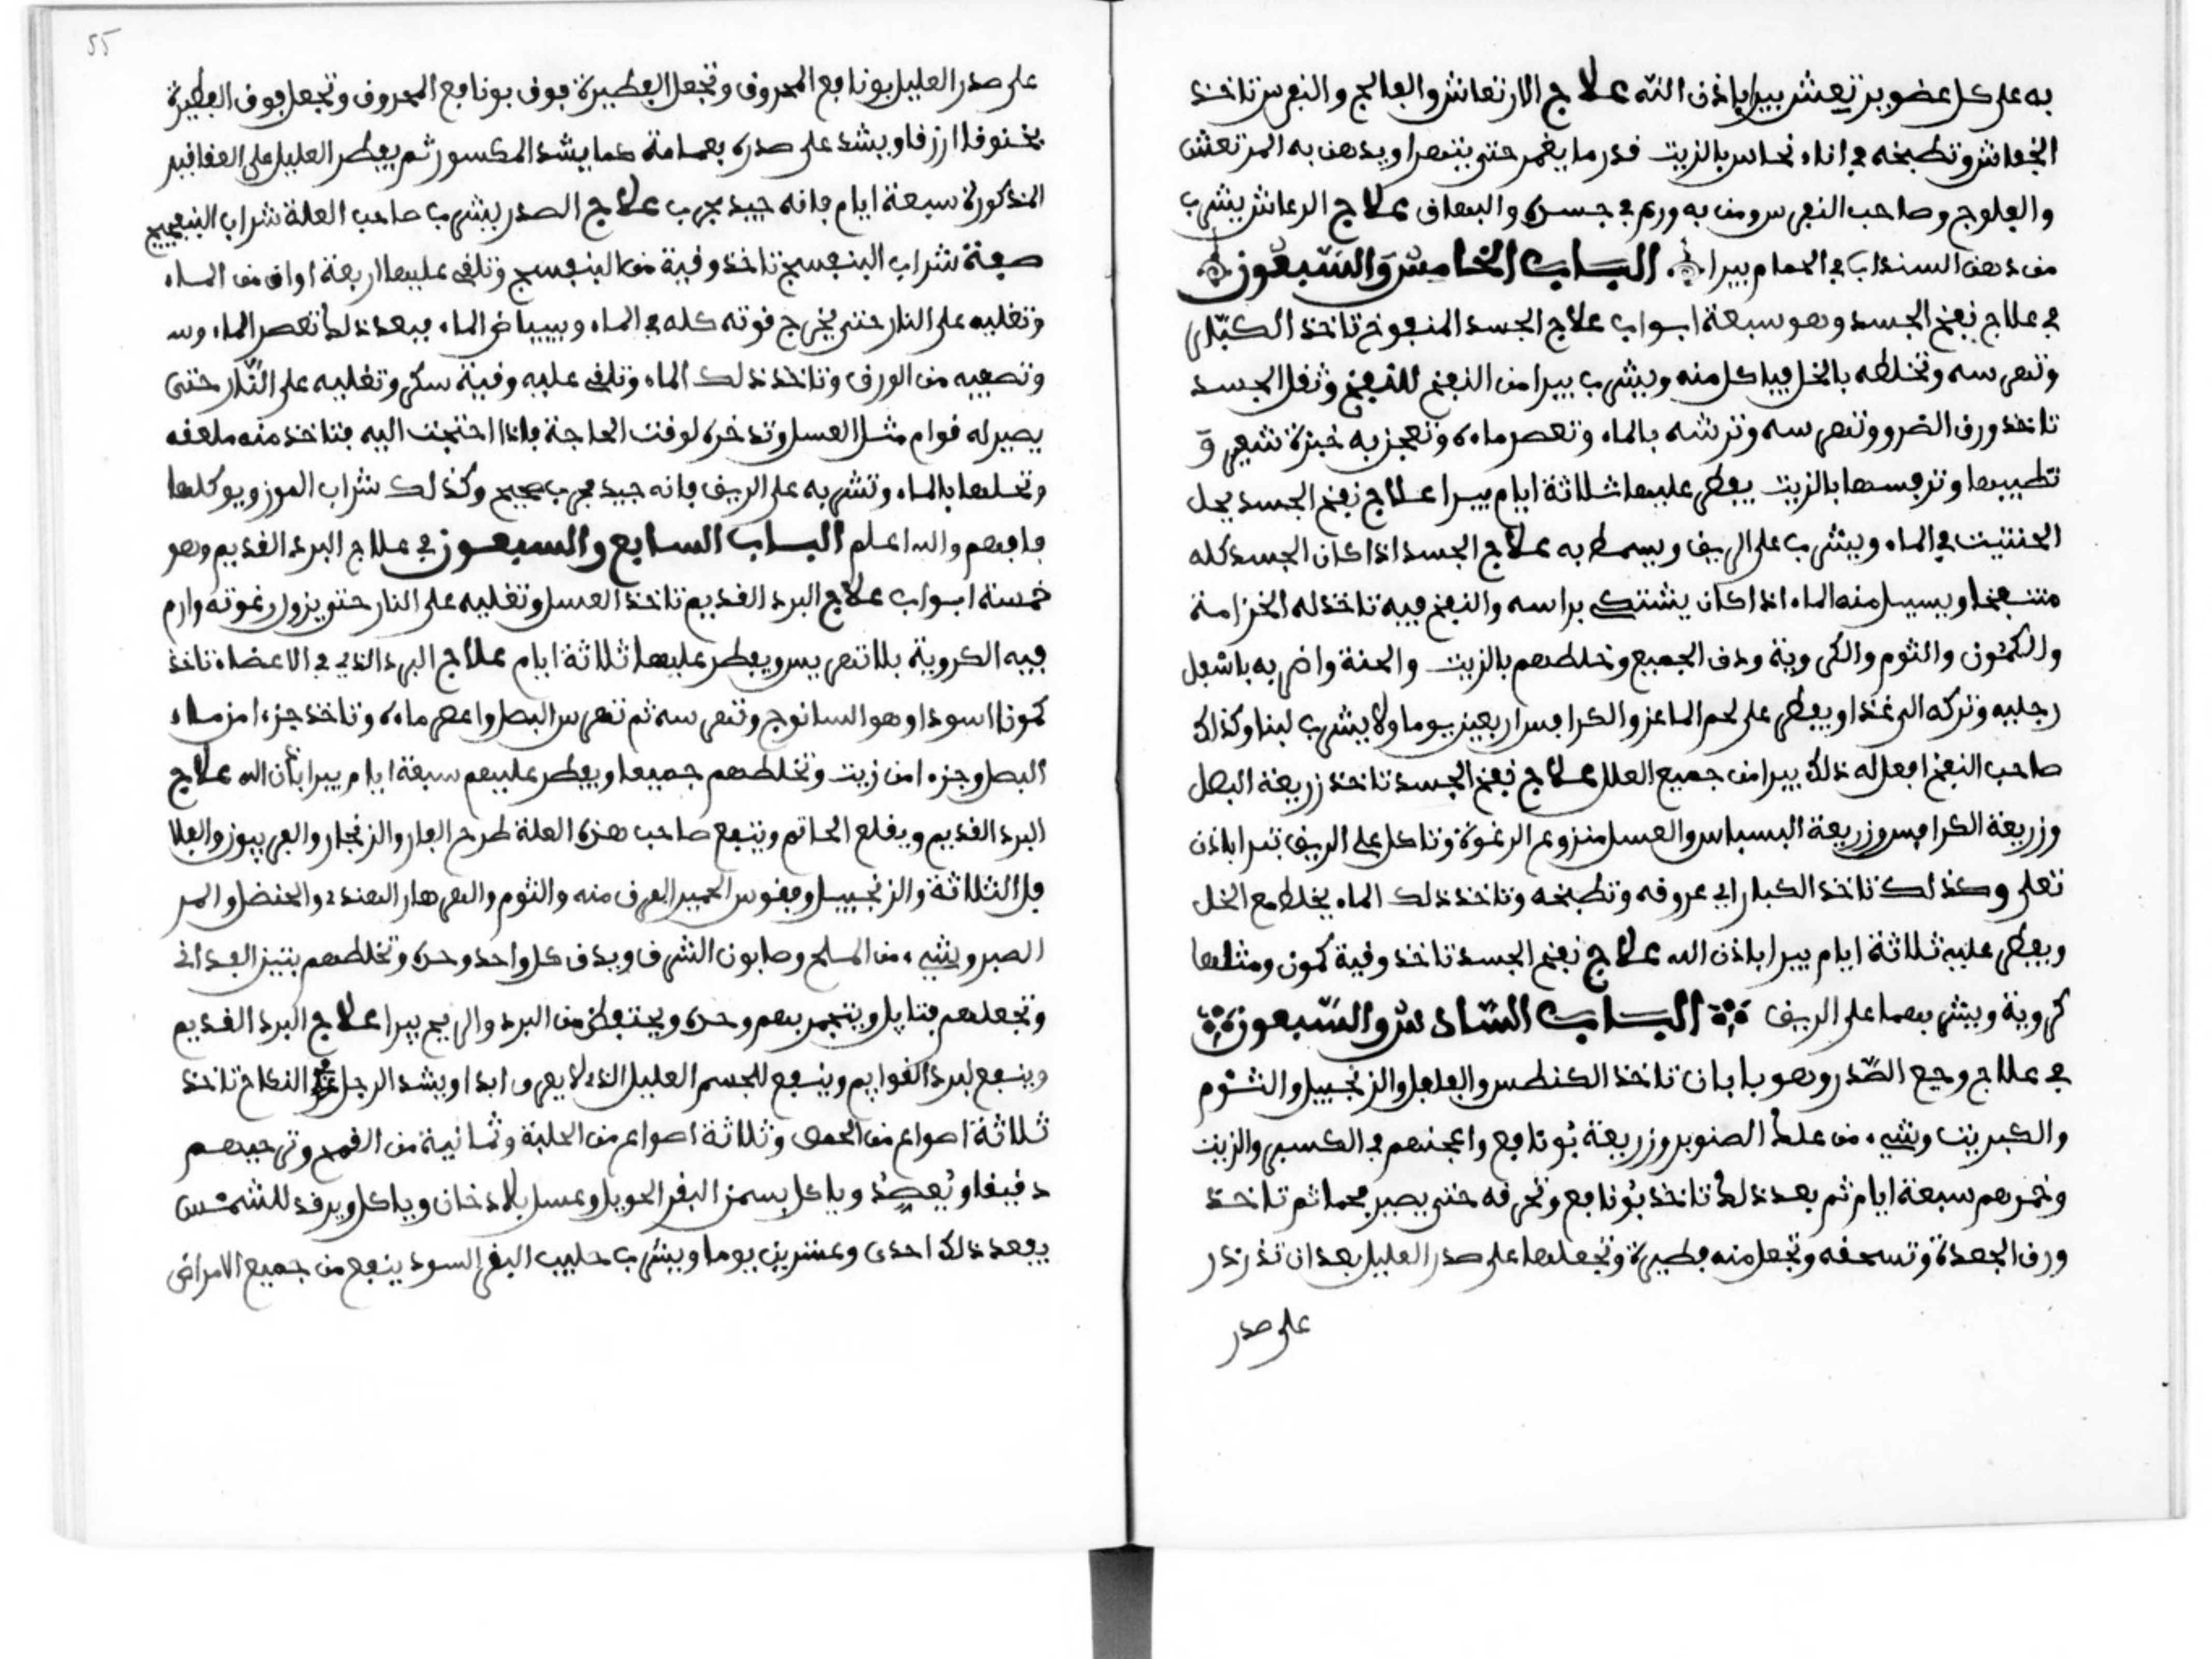 به على كل عضو يرتعش يبرا باذن الله علاج الارتعاش والفالج والنفرس تاخذ
الخفاش وتطبخه في اناء نحاس بالزيت قدر ما يغمر حتى يتهرا ويدهن به المرتعش
والفلوج وصاحب النفرس ومن به ورم في جسده والبهاق علاج الرعاش يشرب
من دهن السنداب في الحمام يبرا الباب الخامس والسبعون
في علاج نفخ الجسد وهو سبعة ابواب علاج الجسد المنفوخ تاخذ الكبار
وتهرسه وتخلطه بالخل فياكل منه ويشرب يبرا من النفخ للنفخ وثقل الجسد
تاخذ ورق الضرو وتهرسه وترشه بالماء وتعصر ماءه وتعجن به خبزة شعير و
تطيبها وترفسها بالزيت يفطر عليها ثلاثة ايام يبرا علاج نفخ الجسد يحل
الحنتيت في الماء ويشرب على الريق ويسعط به علاج الجسد اذا كان الجسد كله
متنفخا ويسيل منه الماء اذا كان يشتكي براسه والنفخ فيه تاخذ له الخزامة
والكمون والثوم والكروية ودق الجميع وخلطهم بالزيت والحنة واضربه باسفل
رجليه وتركه الى غذا ويفطر على لحم الماعز والكرافس اربعين يوما ولا يشرب لبنا وكذلك
صاحب النفخ افعل له ذلك يبرا من جميع العلل علاج نفخ الجسد تاخذ زريعة البصل
وزريعة الكرافس وزريعة البسباس والعسل منزوع الرغوة وتاكل على الريق تبرا باذن
تعلى وكذلك تاخذ الكبار اي عروقه وتطبخه وتاخذ ذلك الماء يخلط مع الخل
ويفطر عليه ثلاثة ايام يبرا باذن الله علاج نفخ الجسد تاخذ وقية كمون ومثلها
كروية ويشربهما على الريق الباب السادس والسبعون
في علاج وجع الصدر وهو بابان تاخذ الكنطس والفلفل والزنجبيل والثوم
والكبريت وشيء من علك الصنوبر وزريعة بونافع واعجنهم في الكسبر والزيت
وخمرهم سبعة ايام ثم بعد ذلك تاخذ بونافع وتحرقه حتى يصير فحما ثم تاخذ
ورق الجعدة وتسحقه وتجعل منه فطيرة وتجعلها على صدر العليل بعد ان تذرذر
على صدر
55
على صدر العليل بونافع المحروق وتجعل الفطيرة فوق بونافع المحروق وتجعل فوق الفطيرة
ازرقا ويشد على صدره بعمامة كما يشد المكسور ثم يفطر العليل على العقاقير
المذكورة سبعة ايام فانه جيد مجرب علاج الصدر يشرب صاحب العلة شراب البنفسج
صفة شراب البنفسج تاخذ وقية من البنفسج وتلقى عليها اربعة اواق من الماء
وتغليه على النار حتى يخرج قوته كله في الماء ويبياض الماء فبعد ذلك تعصر الماء وسه
وتصفيه من الورق وتاخذ ذلك الماء وتلقى عليه وقية سكر وتغليه على النار حتى
يصير له قوام مثل العسل وتدخره لوقت الحاجة فاذا احتجت اليه فتاخذ منه ملعقه
وتحلها بالماء وتشربه على الريق فانه جيد مجرب صحيح وكذلك شراب الموز ويوكلها
فافهم والله اعلم الباب السابع والسبعون في علاج البرد القديم وهو
خمسة ابواب علاج البرد القديم تاخذ العسل وتغليه على النار حتى يزول رغوته وارم
فيه الكروية بلا تهريس ويفطر عليها ثلاثة ايام علاج البرد الذي في الاعضاء تاخذ
كمونا اسودا وهو السانوج وتهرسه ثم تهرس البصل واعصر ماءه وتاخذ جزءا من ماء
البصل وجزءا من زيت وتخلطهم جميعا ويفطر عليهم سبعة ايام يبرا باذن الله علاج
البرد القديم ويقلع الحاتم وينفع صاحب هذه العلة طرح الفار والزنجار والفربيوز والفلا
فل الثلاثة والزنجبيل وفقوس الحمير العرق منه والثوم والعرهار الهندي والحنضل والمر
الصبر وشيء من الملح وصابون الشرق ويدق كل واحد وحده وتخلطهم بتبيز
وتجعلهم فتايل ويتجمر بهم وحده ويحتفظ من البرد والريح يبرا علاج البرد القديم
وينفع لبرد القوايم وينفع للجسم العليل الذي لا يعرق ابدا ويشد الرجل عند النكاح تاخذ
ثلاثة اصواع من الحمص وثلاثة اصواع من الحلبة وثمانية من القمح وترحيهم
دقيقا وتعصد وياكل بسمن البقر الحويل وعسل بلا دخان وياكل ويرقد للشمس
يفعد ذلك احدى وعشرين يوما ويشرب حليب البقر السود ينفع من جميع الامراض